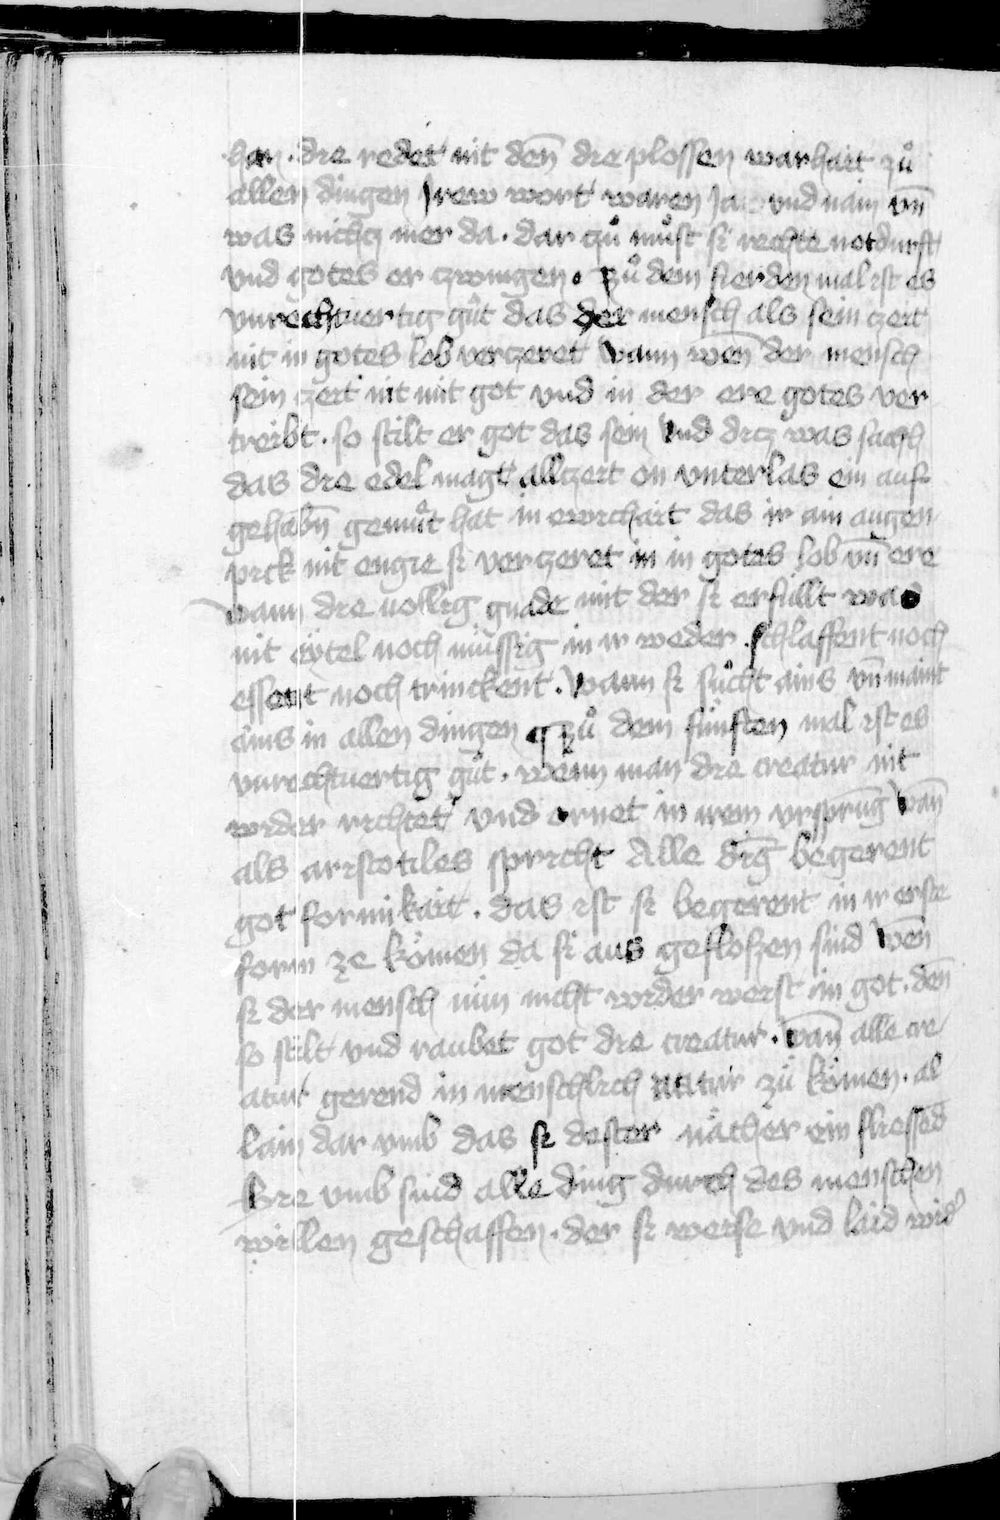 han · die redet nit den̄ die plossen warhait zů
allen dingen Irew wort waren Ja vnd nain vn̄
was nichcz mer da · dar zů můst si rechte notdurft
vnd gotes er zwingen · Zů dem fierden mal ist es
vnrechtuertig gůt das der mensch als sein zeit
nit in gotes lob verczeret Wann wen̄ der mensch
sein zeit nit mit got vnd in der ere gotes ver
treibt · so stilt er got das sein Vnd dicz was sach
das die edel magt allczeit on vnterlas ein auf
gehabn̄ gemůt hat in ewichait das ir ain augen
plick nit engie si verczeret in in gotes lob vn̄ ere
wann die vollig gnade mit der si erfüllt was
nit eytel noch müssig in ir weder schlaffent noch
essent noch trinckent · Wann si sůcht ains vn̄ maint
ains in allen dingen ¶ Zů dem fünften mal ist es
vnrechtuertig gůt · wenn man die creatur nit
wider richtet vnd ornet in iren vrsprūg Wan̄
als aristotiles spricht Alle dīg begerent
got formikait · das ist si begerent in ir erste
form ze kömen da si aus geflossen sind Wen̄
si der mensch nun nicht wider weist in got · den̄
so stilt vnd raubet got die creatur · Wan̄ alle cre
atur gerend in menschlich natur zů kömen · al
lain dar vmb das si dester nächer ein fliessēd
Hie vmb sind alle ding durch des menschen
willen geschaffen · der si weise vnd laid wid̉